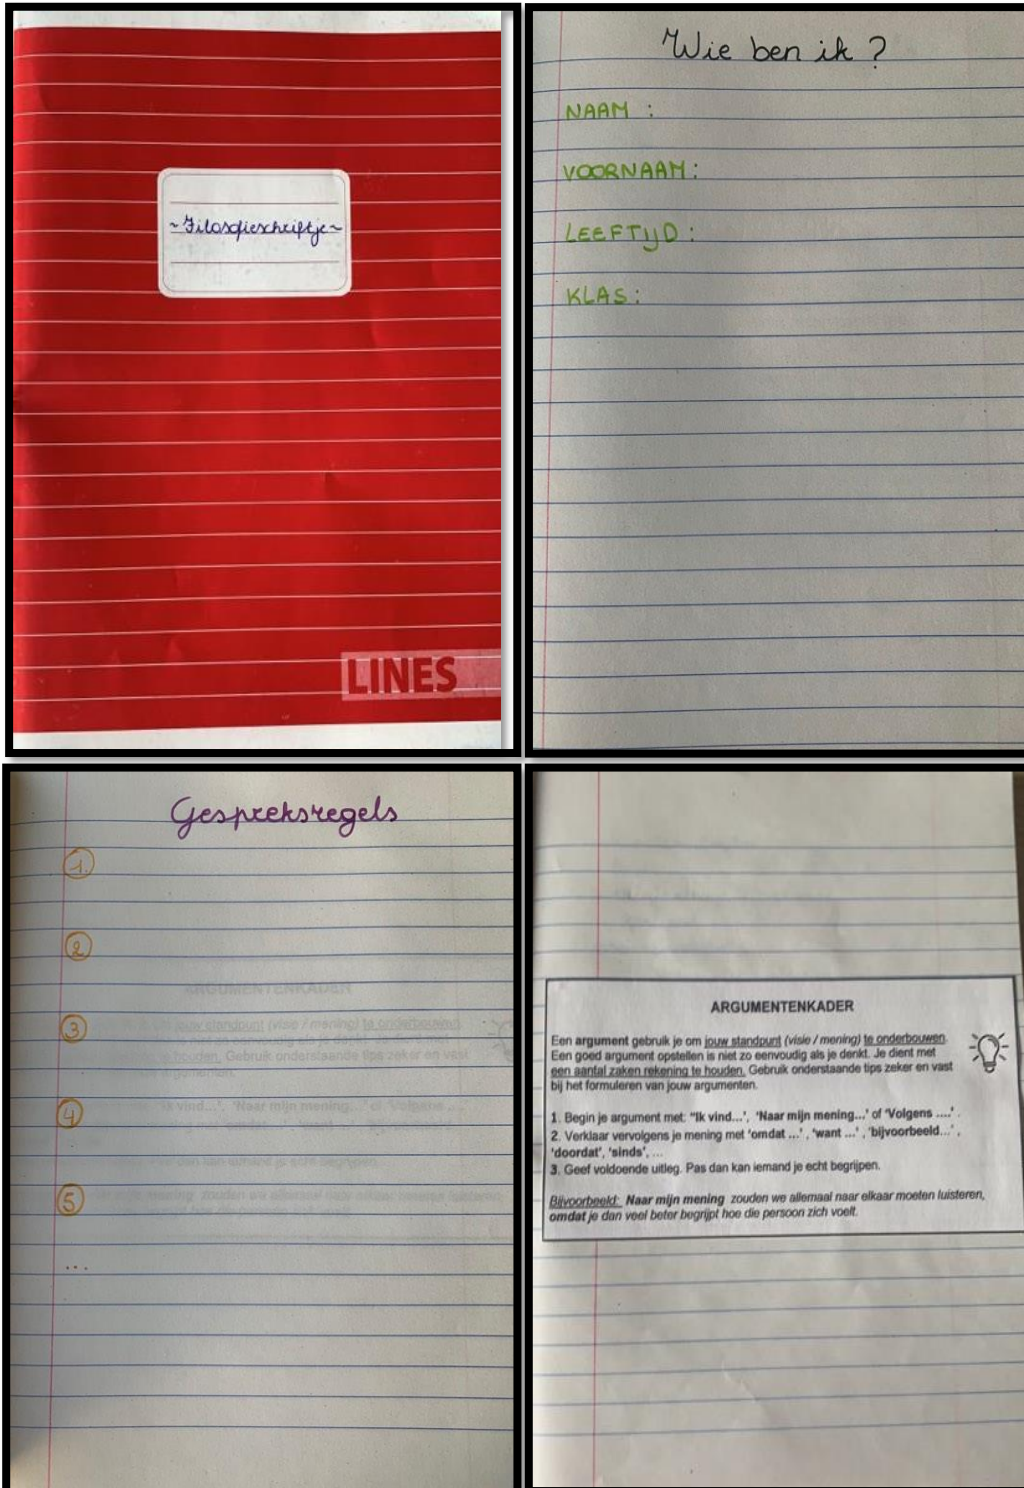 ~Filosofieschriftje~
LINES
Wie ben ik ?
NAAM :
VOORNAAM :
LEEFTIJD :
KLAS :
Gespreksregels
1.
2
3
4
5
...
ARGUMENTENKADER
Een argument gebruik je om jouw standpunt (visie / mening) te onderbouwen.
Een goed argument opstellen is niet zo eenvoudig als je denkt. Je dient met
een aantal zaken rekening te houden. Gebruik onderstaande tips zeker en vast
bij het formuleren van jouw argumenten.
1. Begin je argument met: "Ik vind...', 'Naar mijn mening...' of 'Volgens ....' .
2. Verklaar vervolgens je mening met 'omdat ...' , 'want ...' , 'bijvoorbeeld...' ,
'doordat', 'sinds', ...
3. Geef voldoende uitleg. Pas dan kan iemand je echt begrijpen.
Bijvoorbeeld: Naar mijn mening zouden we allemaal naar elkaar moeten luisteren,
omdat je dan veel beter begrijpt hoe die persoon zich voelt.